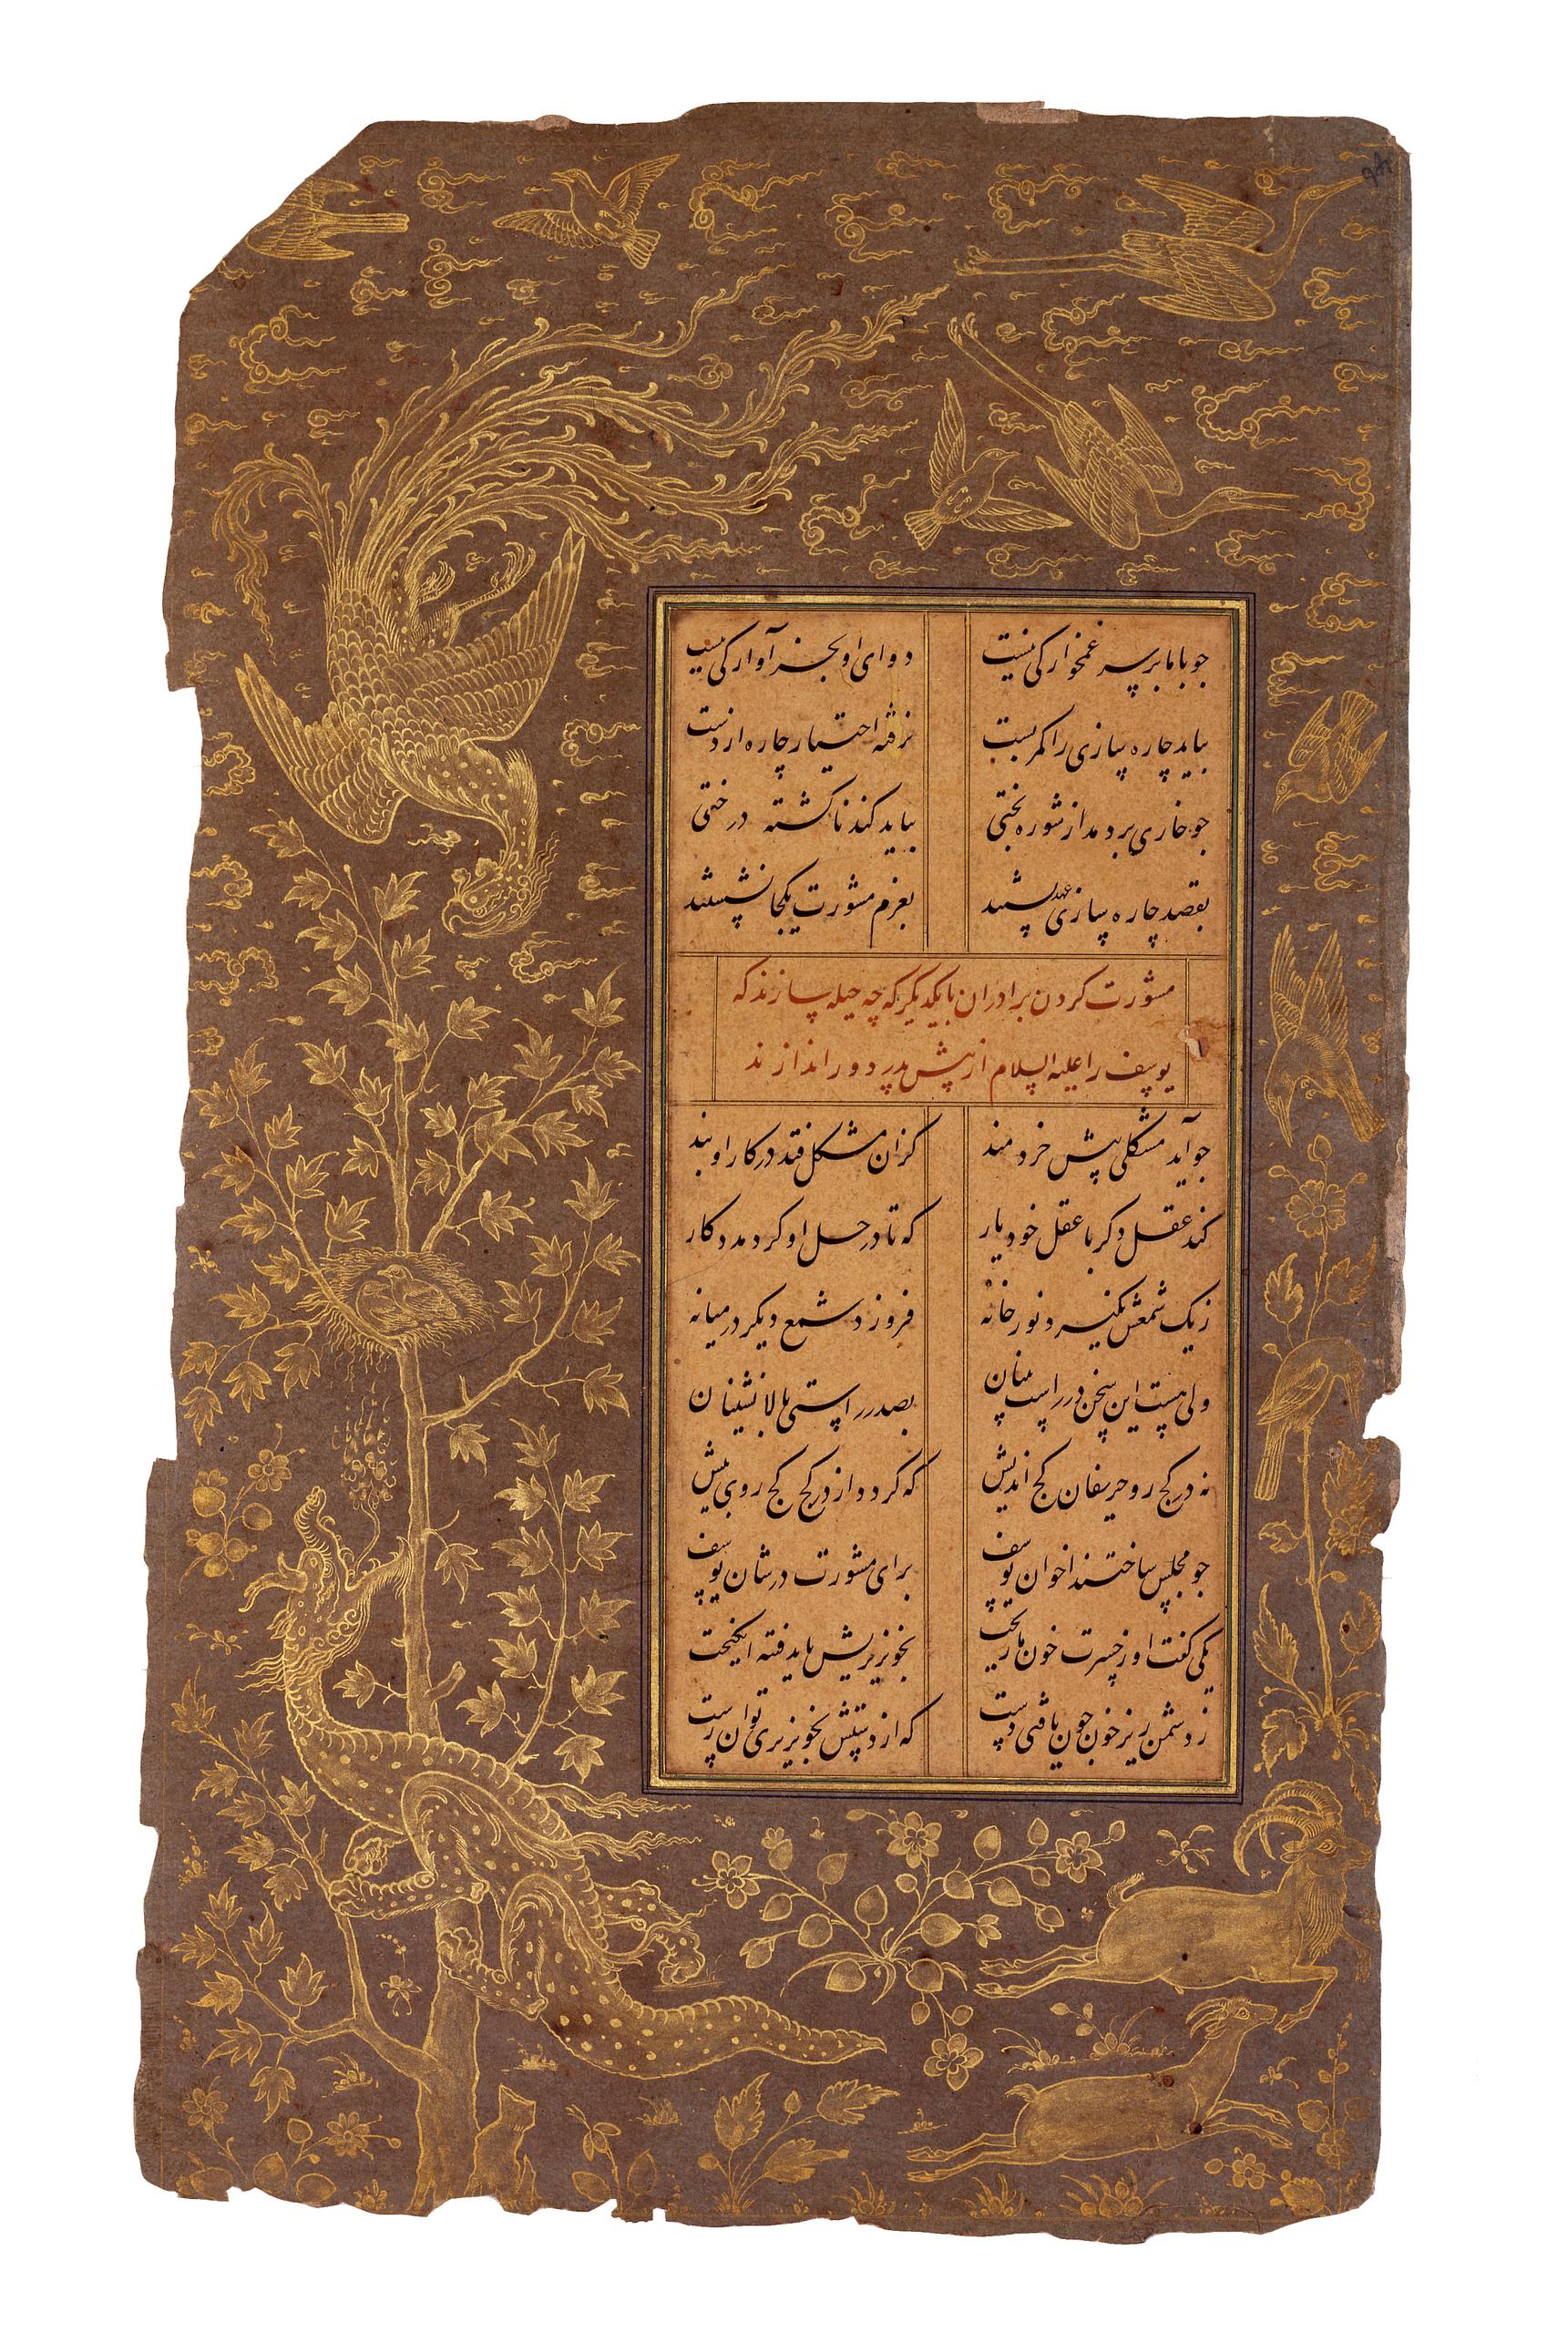 چو با ما بر سر غمخوارگی نیست دوای او بجز آوارگی نیست
بباید چاره سازی را کمر بست نرفته اختیار چاره از دست
چو خاری بر دمد از شوره بختی بباید کند ناگشته درختی
بقصد چاره سازی عهد بستند بعزم مشورت یکجا نشستند
مشورت کردن برادران با یکدیگر که چه حیله سازند که
یوسف را علیه السلام از پیش پدر دور اندازند
چو آید مشکلی پیش خردمند کزان مشکل فتد در کار او بند
کند عقل دگر با عقل خود یار که تا در حل او گردد مددکار
ز یک شمعش نگیرد نور خانه فروزد شمع دیگر در میانه
ولی هست این سخن در راست بینان بصدر راستی بالانشینان
نه در کج رو حریفان کج اندیش که گردد از در کج کج روی بیش
چو مجلس ساختند اخوان یوسف برای مشورت در شان یوسف
یکی گفت او ز حسرت خون ما ریخت بخونریزیش باید فتنه انگیخت
ز دشمن ریز خون چون یافتی دست که از دستش بخونریزی توان رست